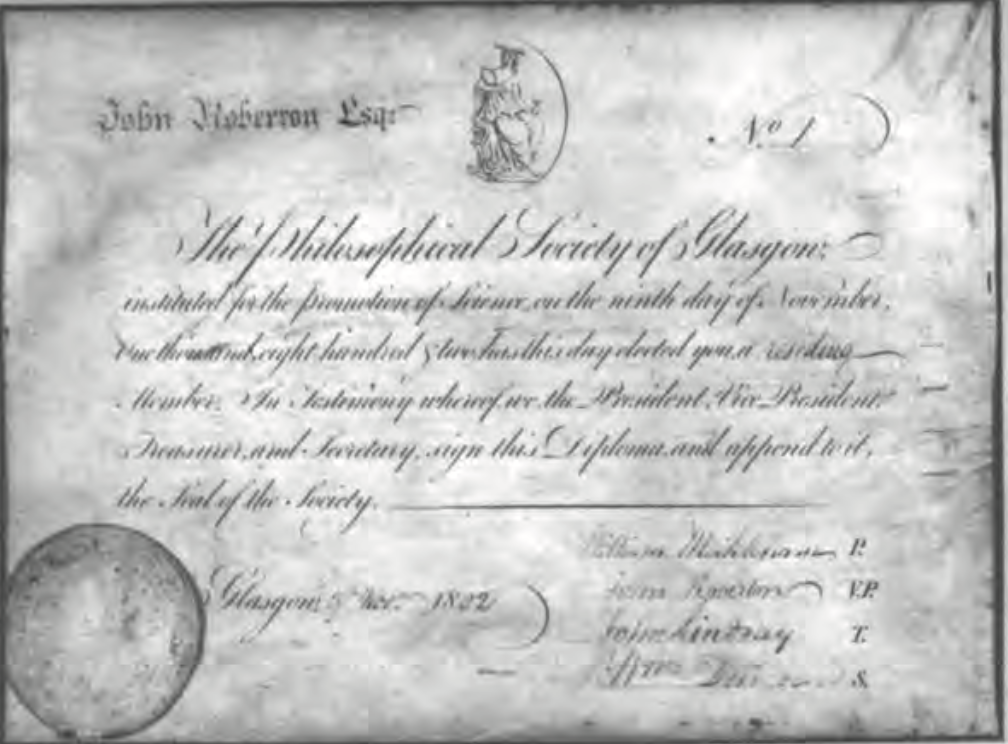 John Roberton Esqr
No 1
The Philosophical Society of Glasgow;
instituted for the promotion of Science, on the ninth day of November,
One thousand, eight hundred & two has this day elected you, a residing
Member. In Testimony whereof, we the President, Vice President,
Treasurer, and Secretary, sign this Diploma, and append to it,
the Seal of the Society.
William P.
Glasgow, 9 Novr 1802
John Roberton V.P.
John Lindsay T.
Wm S.